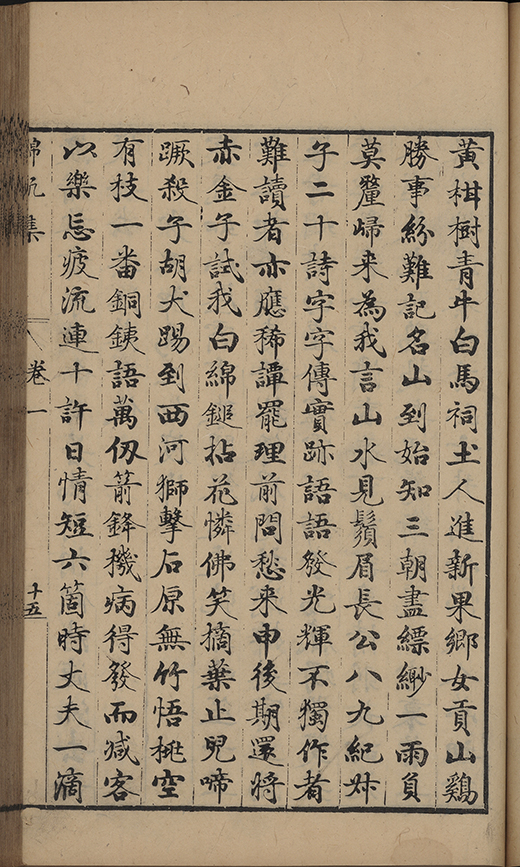 黃柑樹青牛白馬祠土人進新果鄉女貢山鷄
勝事紛難記名山到始知三朝盡縹緲一雨負
莫釐歸来為我言山水見鬚眉長公八九紀丼
午二十詩字字傳實跡語語發光輝不獨作者
難讀者亦應稀譚罷理前問愁来申後期還將
赤金子試我白綿鎚拈花憐佛笑摘葉止兒啼
蹶殺子胡犬踢到西河獅擊石原無竹悟桃空
有枝一番銅銕語萬仭箭鋒機病得發而减客
以樂忘疲流連十許日情短六箇時丈夫一滴
錦帆集
卷一
十五